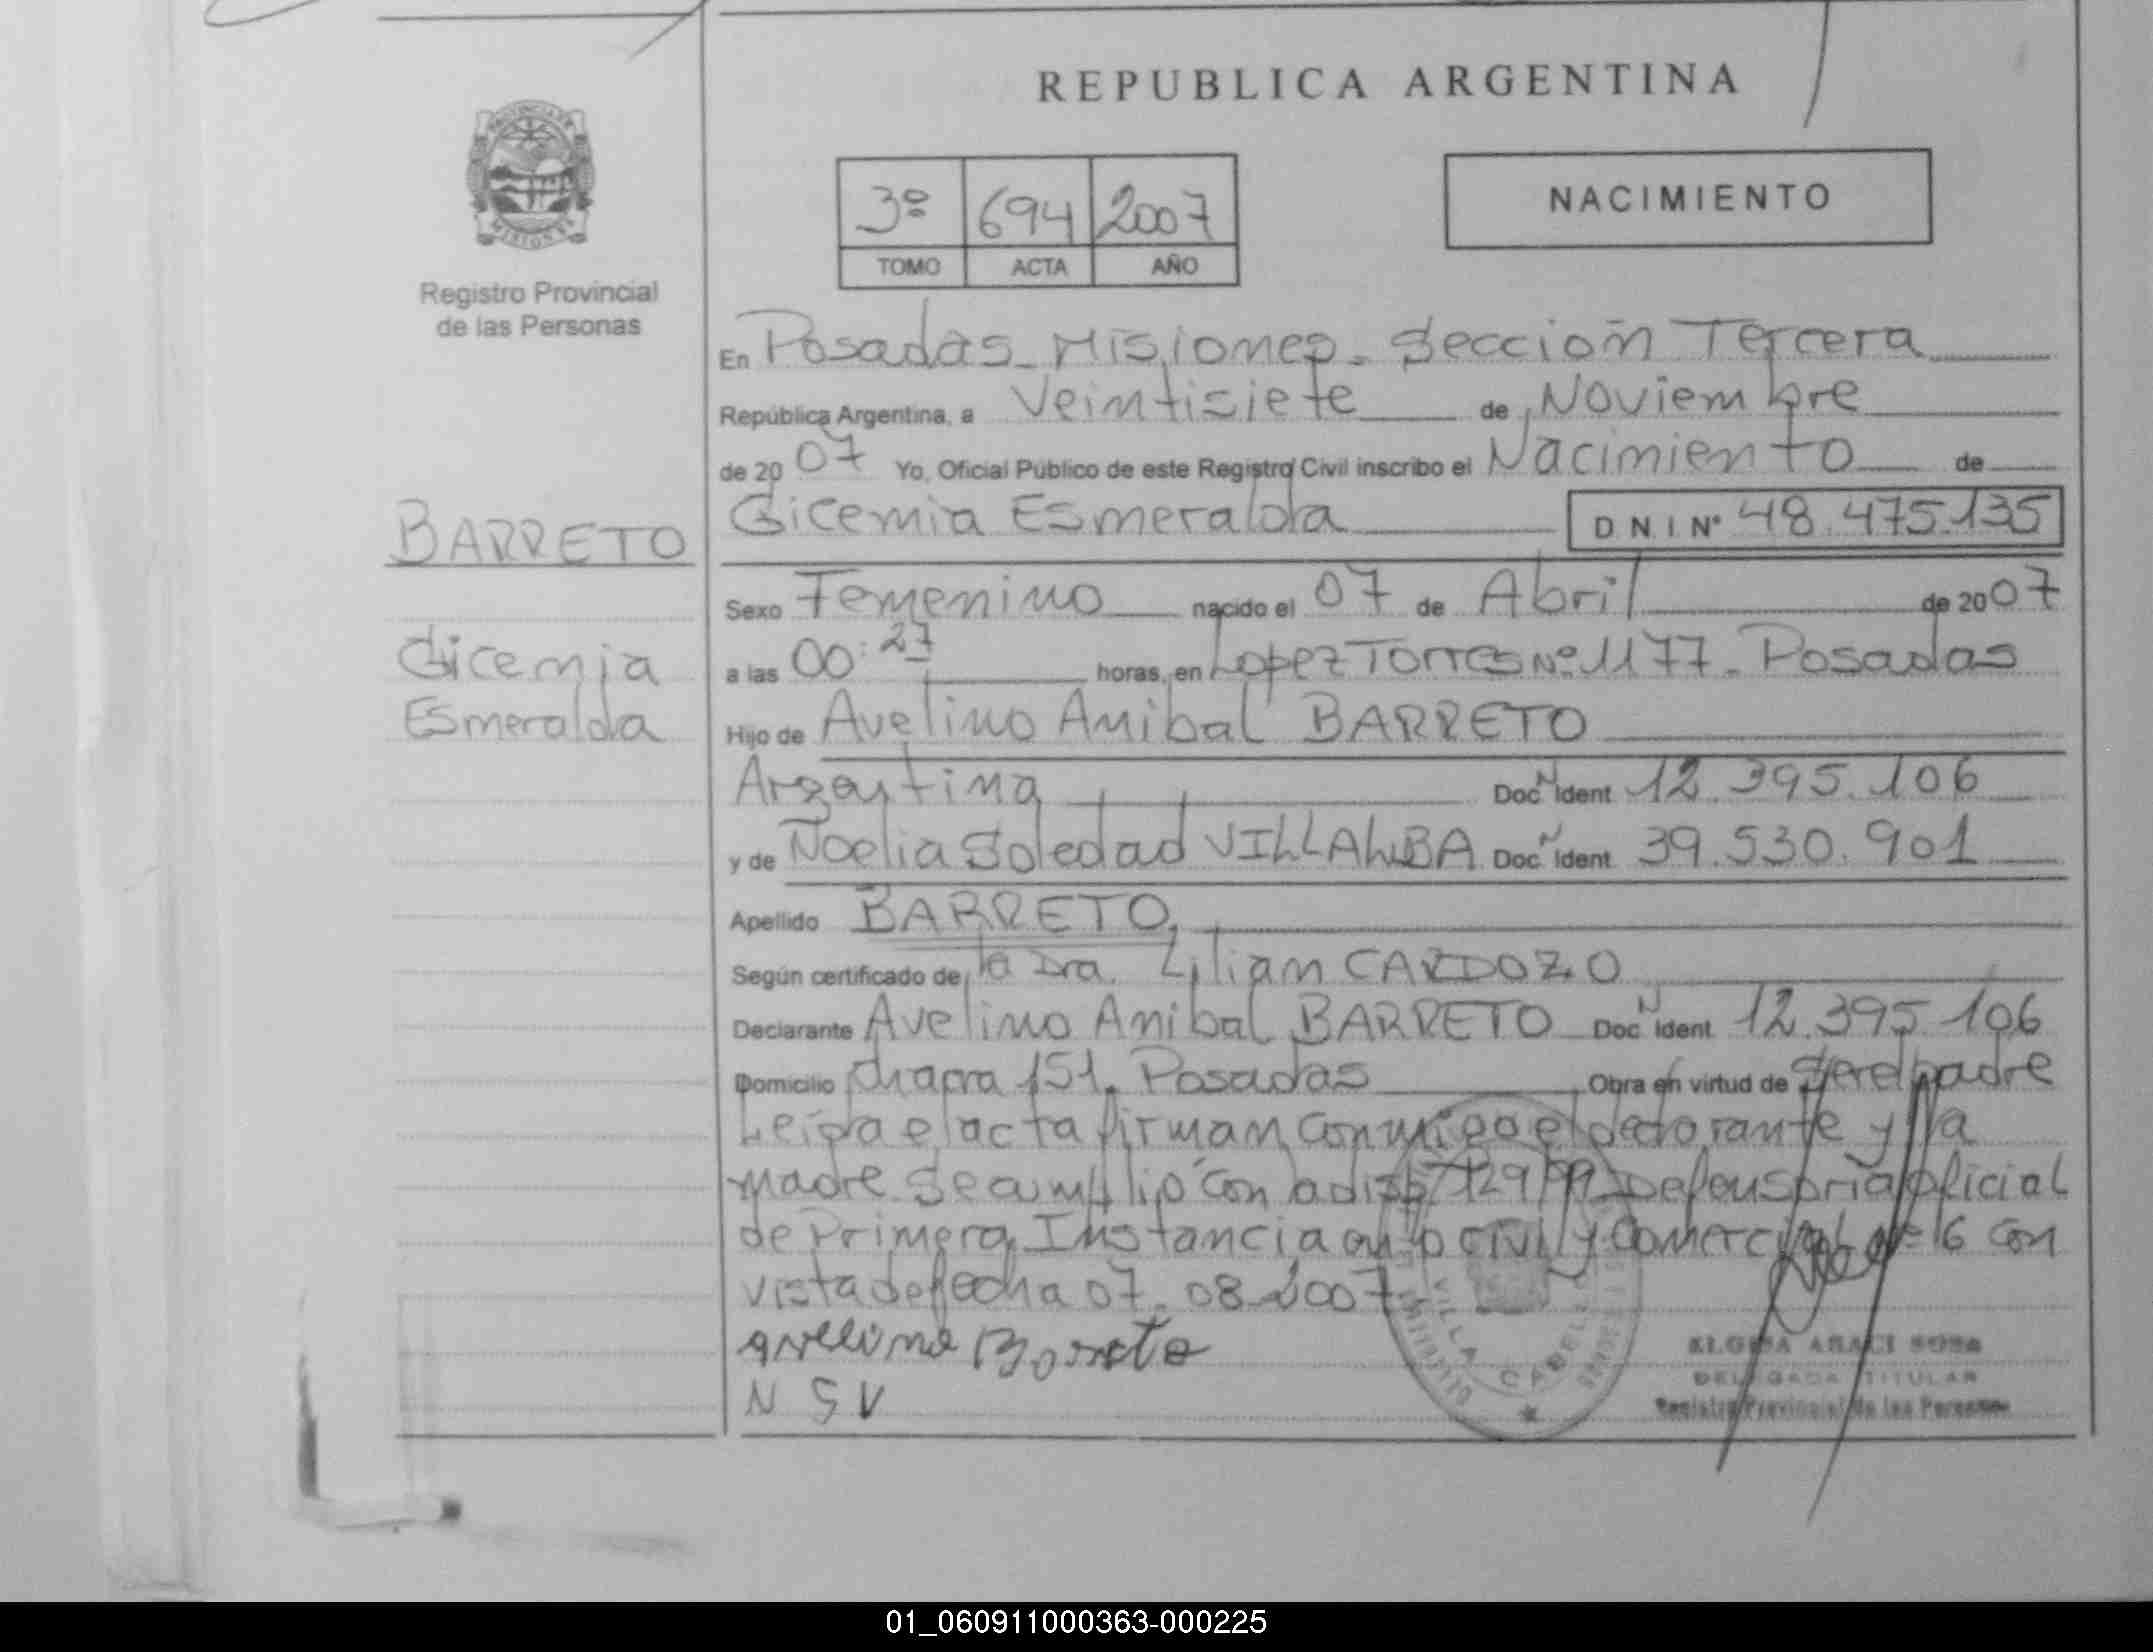 REPUBLICA ARGENTINA
PROVINCIA DE
MISIONES
Registro Provincial
de las Personas
3º 694 2007
TOMO ACTA AÑO
NACIMIENTO
En Posadas Misiones. Sección Tercera
República Argentina, a Veintisiete de Noviembre
de 20 07 Yo, Oficial Público de este Registro Civil inscribo el Nacimiento de
BARRETO
Gicemia Esmeralda D N I Nº 48.475.135
Sexo Femenino nacido el 07 de Abril de 2007
Gicemia
a las 00:27 horas, en Lopez Torres Nº 1177. Posadas
Esmeralda
Hijo de Avelino Anibal BARRETO
Argentina Doc N Ident 12.395.106
y de Noelia Soledad VILLALBA Doc N Ident 39.530.901
Apellido BARRETO
Según certificado de la Dra. Lilian CARDOZO
Declarante Avelino Anibal BARRETO Doc N Ident 12.395.106
Domicilio Chacra 151. Posadas Obra en virtud de Ser el padre
Leida el acta firman conmigo el declarante y la
madre. Se cumplió con la disp 729/99 Defensoria oficial
de Primera Instancia en lo civil y Comercial nº 6 con
vista de fecha 07.08.2007
avelino Barreto
N S V
VILLA CABELLO
ARACI SOSA
DELEGADA TITULAR
Registro Provincial de las Personas
01_060911000363-000225